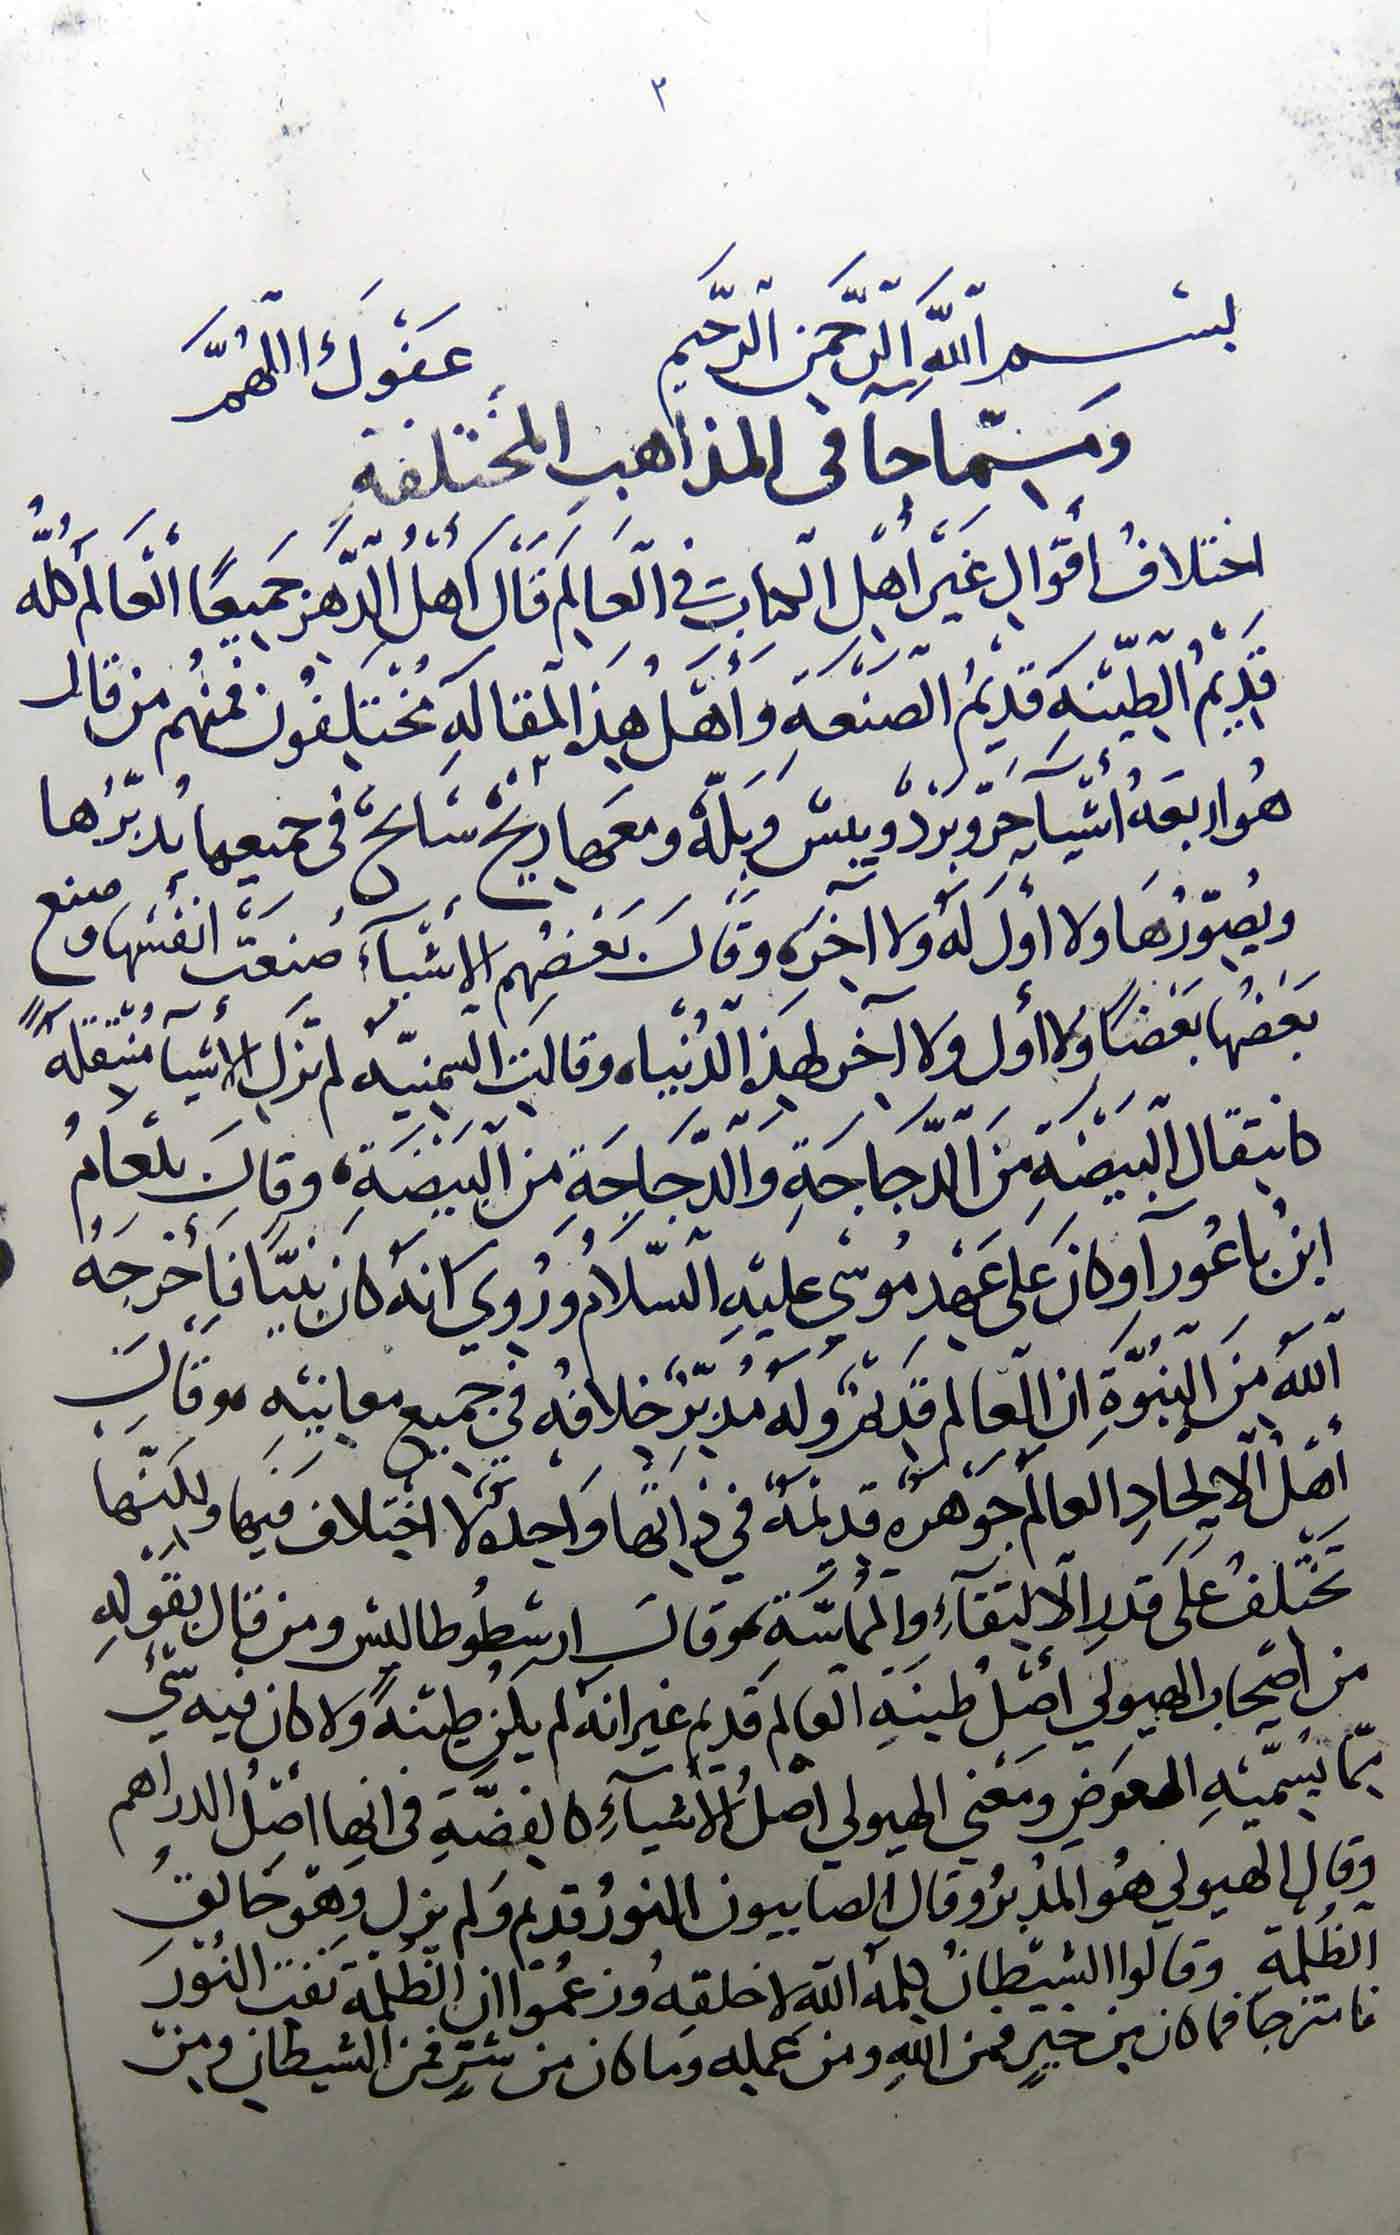 ٣
بِسْمِ اللَّهِ الرَّحْمَنِ الرَّحِيمِ عَفْوَكَ اللَّهُمَّ
وَمِمَّا جآ في المذاهبِ المختلفةِ
اختلافُ أقوالِ غَيْرِ أهْلِ الكتابِ في الْعَالَمِ قَالَ أهْلُ الدَّهْرِ جَمِيعًا الْعَالَمُ كُلُّهُ
قَدِيمُ الطِّينَةِ قَدِيمُ الصَّنْعَةِ وَأَهْلُ هذِه المقالةِ مُخْتَلِفُونَ فمنهُم من قال
هُوَ اربعةُ أشْيَآءَ حَرٌّ وبَرْدٌ ويبسٌ وبَلَّةٌ ومعها ريحٌ سَابحٌ في جميعها يُدَبِّرُها
ويُصَوِّرُهَا ولا أولَ لَهُ ولا آخرَ، وقَالَ بَعْضُهم الأشيآءُ صُنعَتْ انفُسُها وصنع
بَعْضُها بَعْضًا ولا أول ولا آخر لهذِه الدُّنْيا، وقالت السمنيّة لم تزل الأشيآ مُنْتقلةً
كانتقال الْبَيْضَةِ مِنَ الدَّجَاجَةِ وَالدَّجَاجَةِ مِن الْبَيْضَةِ، وقالَ بلعامُ
ابنُ باعُورآ وكانَ عَلى عَهْدِ مُوسَى عليْهِ السّلامُ ورُوِيَ انهُ كان نبيًّا فَأَخْرجَهُ
اللهُ مِنَ النُّبُوَّةِ ان العالم قديمٌ ولهُ مُدبِّرٌ خلافهُ في جميع معانيهِ، وقَالَ
أهْلُ الالحادِ العالمُ جَوْهَرةٌ قديمةٌ في ذاتها وَاحدةٌ لا اخْتِلافَ فيها ولكنّها
تَخْتَلفُ عَلى قدرِ الالتقآءِ والمُماسَّةِ، وقالَ ارسْطُوطاليس ومن قال بقَوْلهِ
من اصحاب الهيولي أصْلُ طينَةِ العالم قديم غير انه لم يكن طينةً ولا كان فيه شيءٌ
ممّا يُسمّيهِ العرض ومَعْنى الهيولي أصْلُ الأشيآءِ كالفضّةِ في انها أصْلُ الدراهم
وقال الهيولي هُوَ المُدبّرُ وقال الصابيون النورُ قديم ولم يزل وهو خالقُ
الظُّلمةِ وقالوا الشيْطانُ كلمةُ اللهِ لا خلقهُ وزعمُوا ان الظُّلمة نفت النُّورَ
فامتزجا فما كان من خيرٍ فمن اللهِ ومن عمله وما كان من شرٍّ فمن الشيطانِ ومن